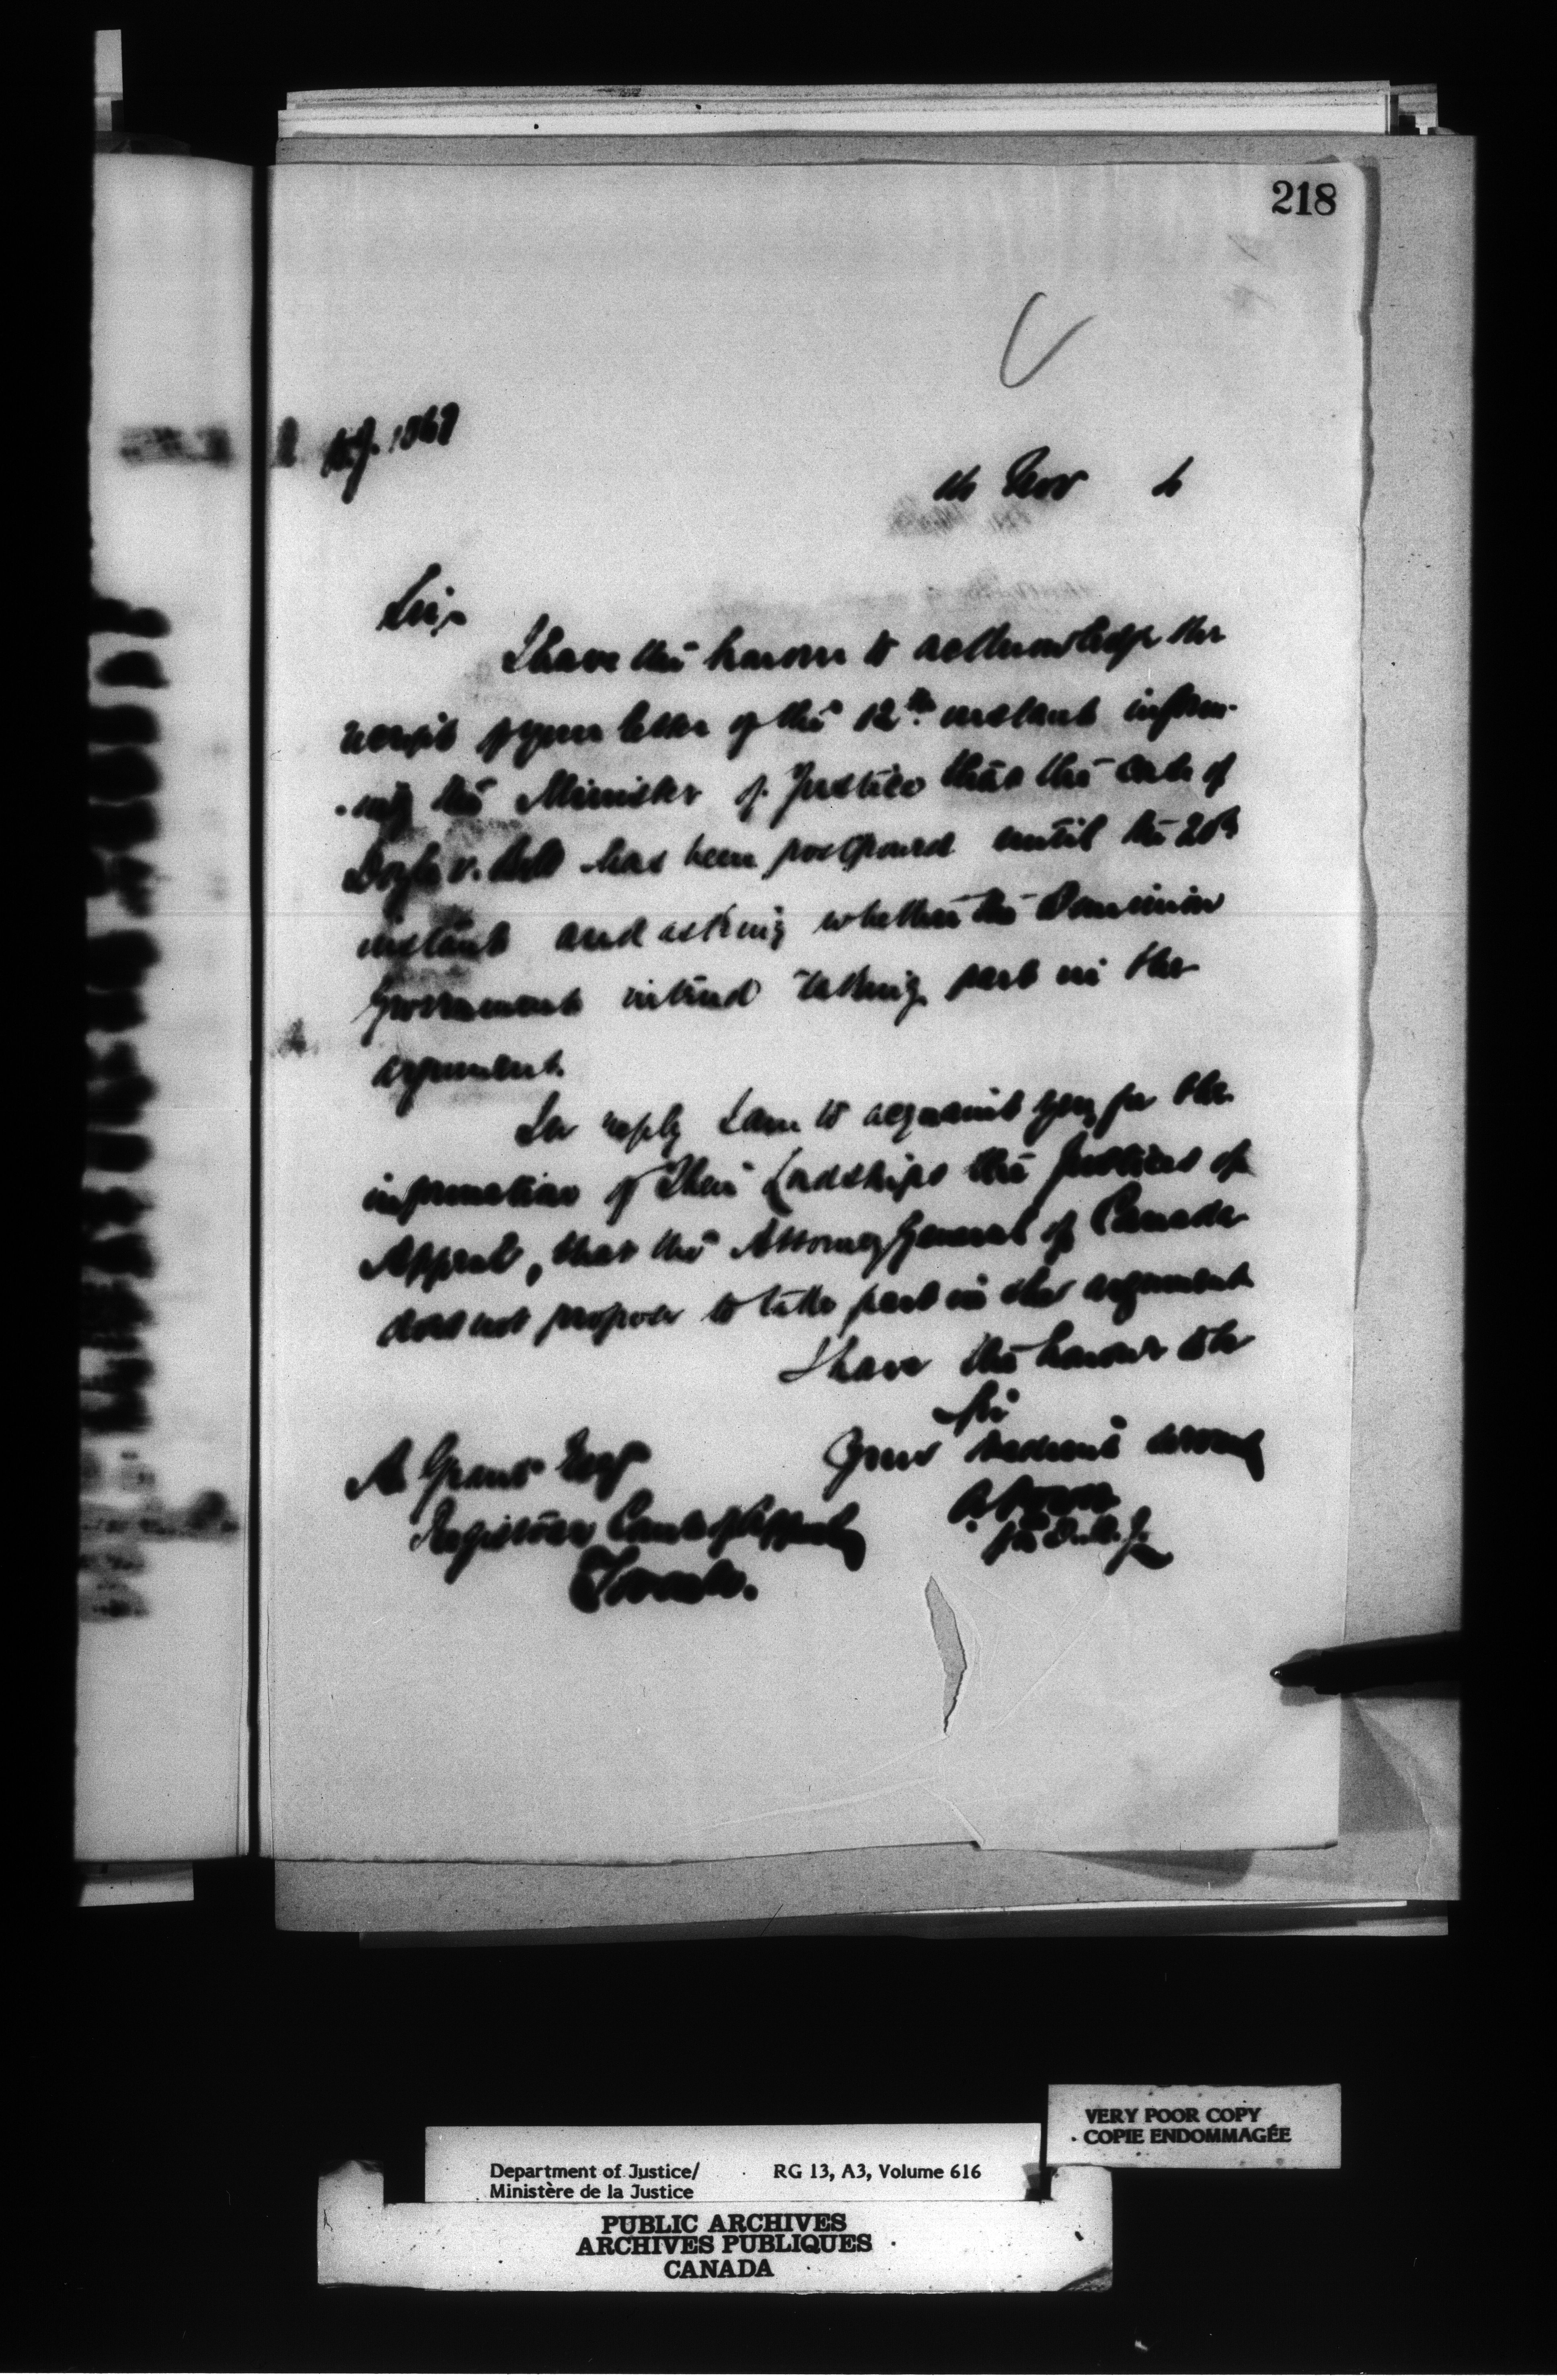 218
Nov
Sir
I have the honour to acknowledge the
receipt of your letter of the 12th instant inform-
-ing the Minister of Justice that the case of
Doyle v. Bell has been postponed until the 20th
instant and asking whether the Dominion
Government intend taking part in the
argument.
In reply I am to acquaint you, for the
information of Their Lordships the Justices of
Appeal, that the Attorney General of Canada
does not propose to take part in the argument
I have the honour to be
Sir
Your obedient servant
A Power
for D.M.J.
A Grant Esqr
Registrar Court of Appeal
Toronto.
VERY POOR COPY
COPIE ENDOMMAGÉE
Department of Justice/ RG 13, A3, Volume 616
Ministère de la Justice
PUBLIC ARCHIVES
ARCHIVES PUBLIQUES
CANADA